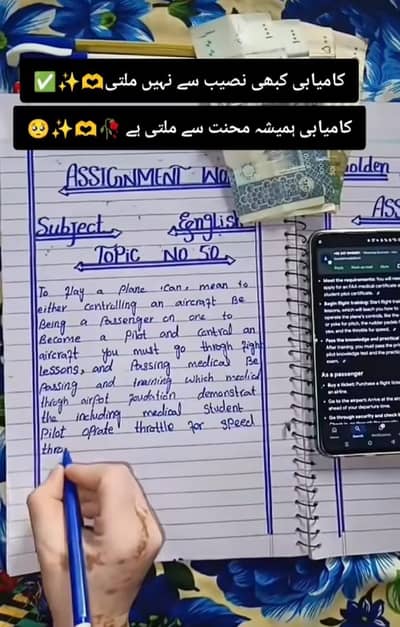 کامیابی کبھی نصیب سے نہیں ملتی🫶✨✅
کامیابی ہمیشہ محنت سے ملتی ہے 🥀🫶✨🥹
ASSIGNMENT
Subject English
TOPIC NO 50
To Flay a Plane Can, mean to
either Contrilling an aircraft Be
Being a Passenger on one to
Become a Pilot and Contral an
aircraft you must go throgh
lessons, and Passing medical Be
Passing and traininig which
throgh airpot demonstrat
the including medical Student
Pilot oprate throttle For speed
thro
olden
ASS
Meet the requirements: You
apply for an FAA medical certificate
student pilot certificate.
Begin flight training: Start flight
lessons, which will teach you how to
operate the plane's controls, like the
or yoke for pitch, the rudder pedals
yaw, and the throttle for speed.
Pass the knowledge and practical
After training, you must pass the
pilot knowledge test and the practical
exam.
As a passenger
Buy a ticket: Purchase a flight
an airline.
Go to the airport: Arrive at the
ahead of your departure time.
Go through security and check